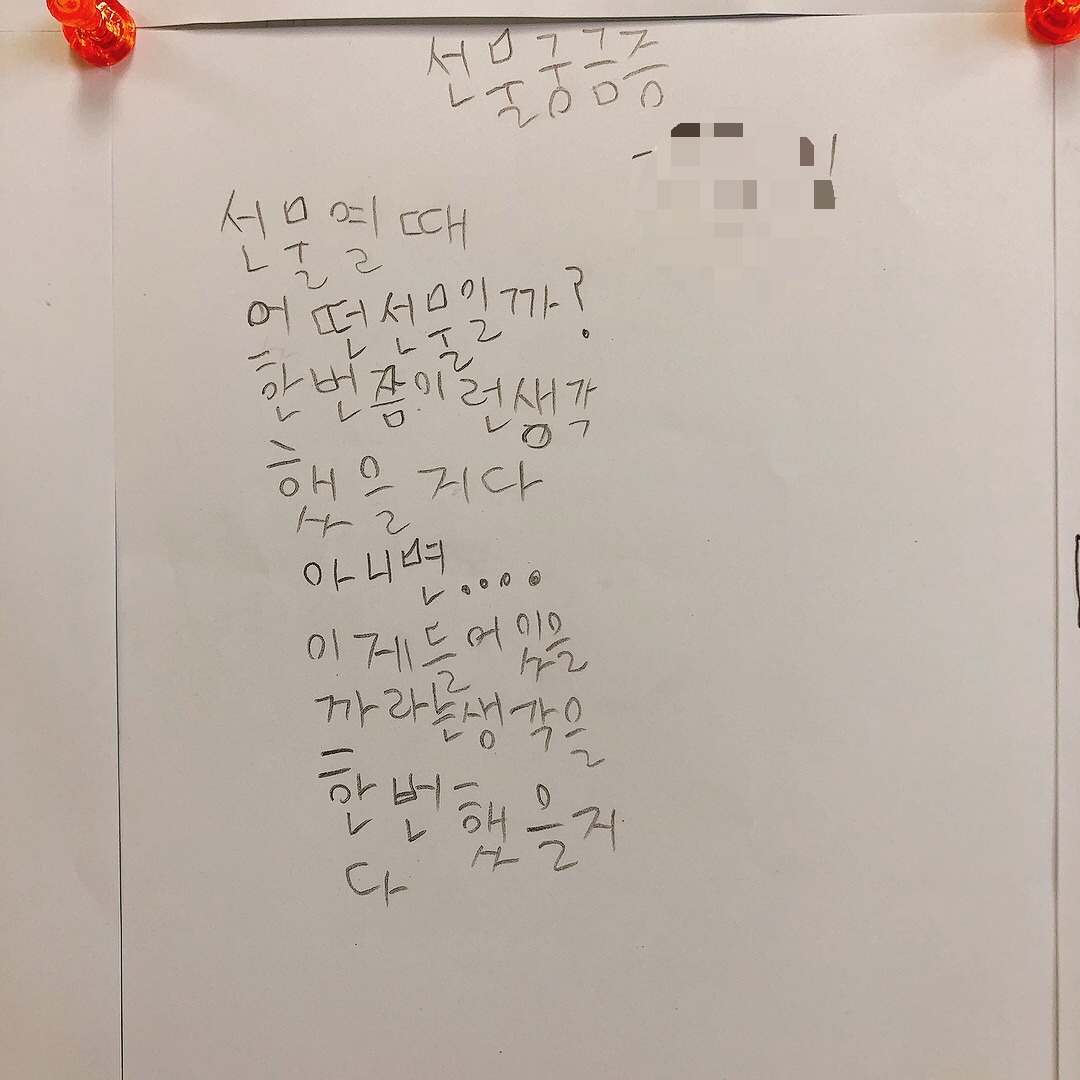 선물궁금증
선물열때
어떤선물일까?
한번쯤이런생각
햇을지다
아니면....
이게들어잇을
까라는생각을
한번햇을지
다